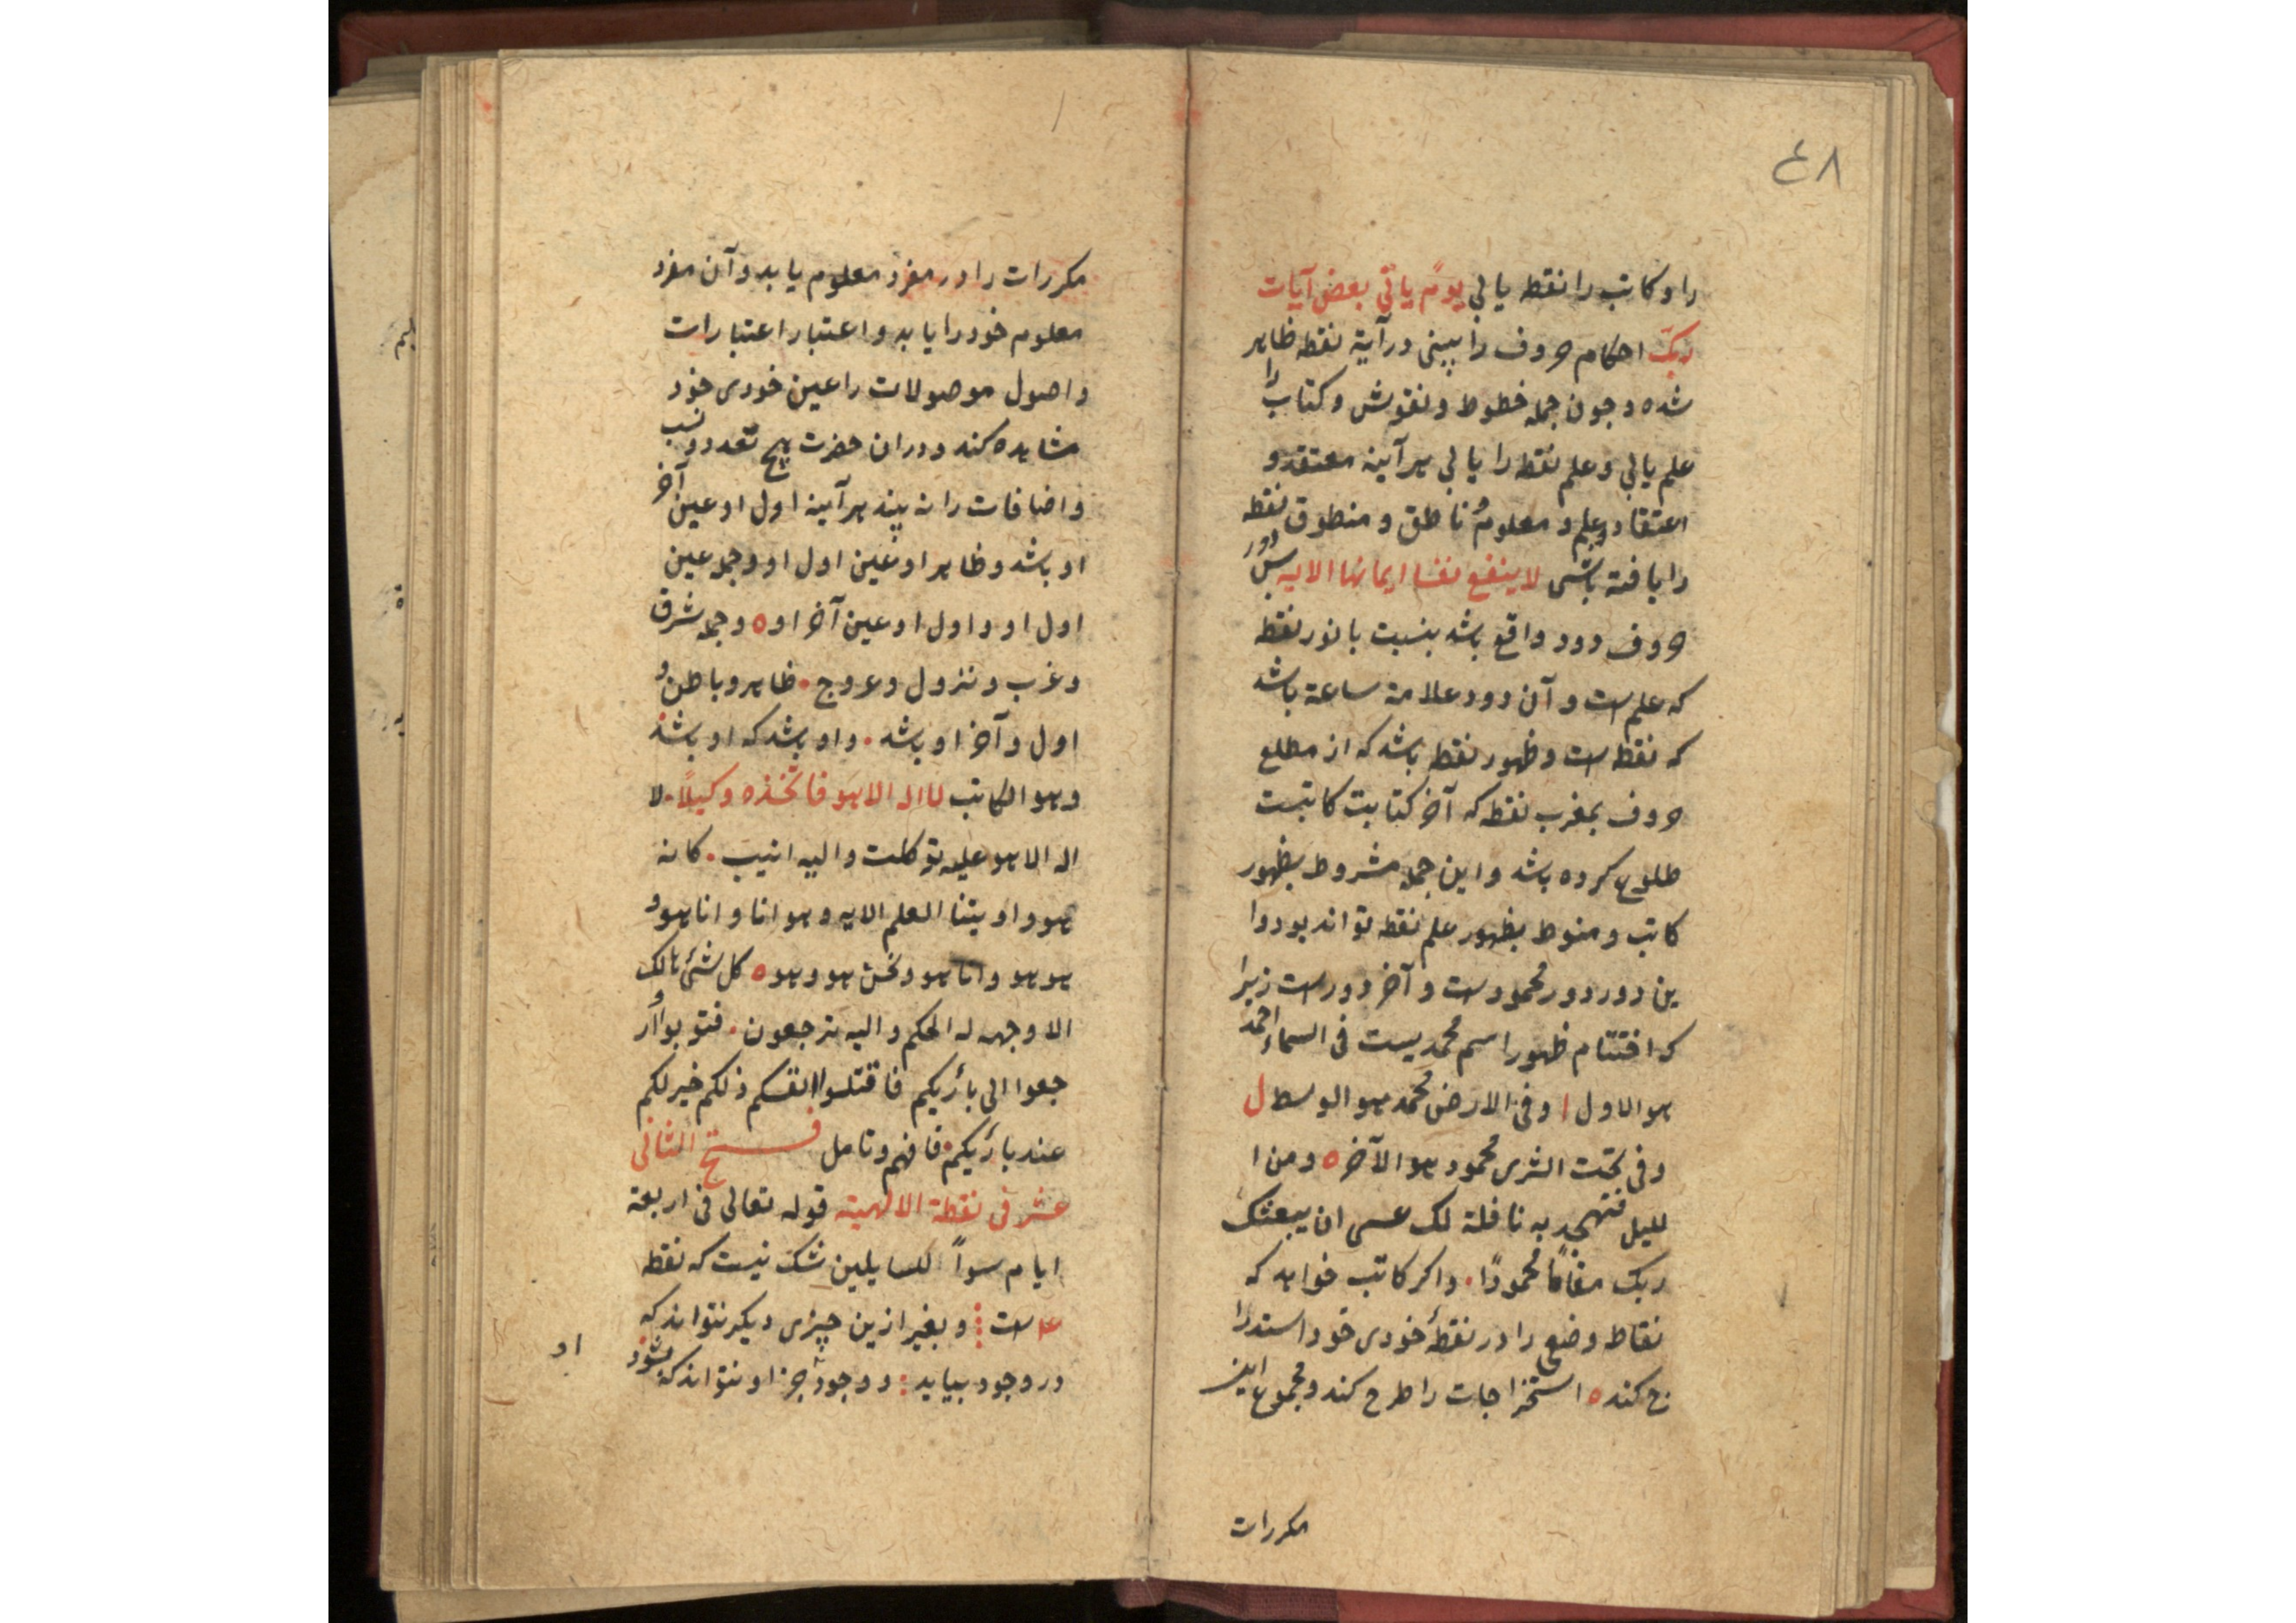 ٤٨
را و کاتب را نقطه یابی یوم یاتی بعض آیات
ربک احکام حروف را ببینی در آینه نقطه ظاهر
شده و چون جمله خطوط و نقوش و کتاب را
علم یابی و علم نقطه را یابی هر آینه معتقد و
اعتقاد و علم و معلوم ناطق و منطوق نقطه
را یافته باشی لا ینفع نفسا ایمانها الایه پس دور
حروف دود واقع باشد بنسبت با نور نقطه
که علمست و آن دود علامة ساعة باشد
که نقطه است و ظهور نقطه باشد که از مطلع
حروف بمغرب نقطه که آخر کتابت کاتبست
طلوع کرده باشد و این جمله مشروط بظهور
کاتب و منوط بظهور علم نقطه تواند بود و ا
ین دور دور محمودست و آخر دورست زیرا
که اختتام ظهور اسم محمدیست فی السماء احمد
هو الاول ا و فی الارض محمد هو الوسط ل
و فی تحت الثری محمود هو الآخر ه و من ا
للیل فتهجد به نافلة لک عسی ان یبعثک
ربک مقامًا محمودًا. و اکر کاتب خواهد که
نقاط وضعی را در نقطهٔ خودی خود استدرا
ج کند ه استخراجات را طرح کند و مجموع این
مکررات
مکررات را در مفرد معلوم یابد و آن مفرد
معلوم خود را یابد و اعتبار اعتبارات
و اصول موصولات را عین خودی خود
مشاهده کند و دران حضرت هیچ تعدد و نسب
و اضافات را نه بیند هر آینه اول او عین آخر
او باشد و ظاهر او عین اول او و جمله عین
اول او و اول او عین آخر او ه و جمله شرق
و غرب و نزول و عروج . ظاهر و باطن و
اول و آخر او باشد . و او باشد که او باشد
و هو الکاتب لا اله الا هو فاتخذه وکیلاً. لا
اله الا هو علیه توکلت و الیه انیب . کانه
هو و اوتینا العلم الایه و هو انا و انا هو و
هو هو و انا هو و نحن هو و هو ه کل شئ هالک
الا وجهه له الحکم و الیه ترجعون . فتوبوا و ار
جعوا الی بارئکم فاقتلوا انفسکم ذلکم خیر لکم
عند بارئکم فافهم و تامل فتح الثانی
عشر فی نقطة الالهیته قوله تعالی فی اربعة
ایام سواً للسایلین شک نیست که نقطه
۴ است و بغیر ازین چیزی دیکر نتواند که
در وجود بیاید و وجود جز او نتواند که بشود
او